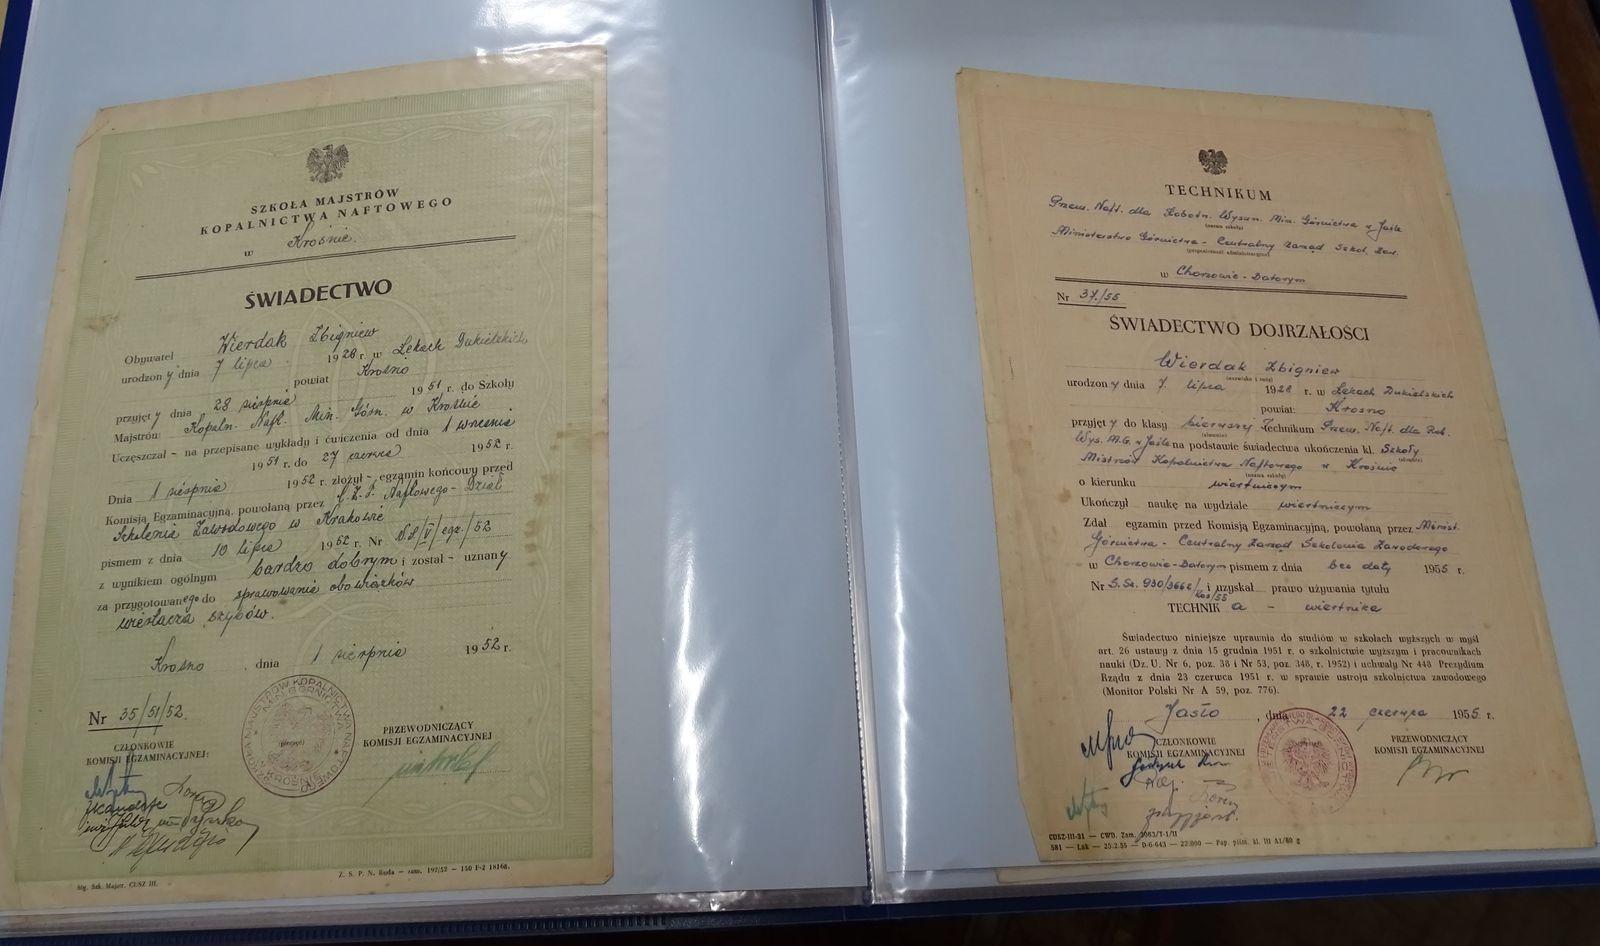 SZKOŁA MAJSTRÓW
KOPALNICTWA NAFTOWEGO
w Krośnie.
ŚWIADECTWO
Obywatel Wierdak Zbigniew
urodzony dnia 7 lipca 1928 r. w Łękach Dukielskich
powiat Krosno
przyjęty dnia 28 sierpnia 1951 r. do Szkoły
Majstrów Kopaln. Naft. Min. Górn. w Krośnie
Uczęszczał – na przepisane wykłady i ćwiczenia od dnia 1 września
1951 r. do 27 czerwca 1952 r.
Dnia 1 sierpnia 1952 r. złożył – egzamin końcowy przed
Komisją Egzaminacyjną, powołaną przez C.Z.P. Naftowego – Dział
Szkolenia Zawodowego w Krakowie
pismem z dnia 10 lipca 1952 r. Nr /V/egz./52
z wynikiem ogólnym bardzo dobrym i został – uznany
za przygotowanego do sprawowania obowiązków
wiertacza szybów.
Krosno, dnia 1 sierpnia 1952 r.
Nr 35/51/52.
CZŁONKOWIE
KOMISJI EGZAMINACYJNEJ:
(pieczęć)
PRZEWODNICZĄCY
KOMISJI EGZAMINACYJNEJ
Stg. Szk. Majstr. CUSZ III.
Z. S. P. N. Ruda — zam. 197/52 — 150 F-2 18168.
TECHNIKUM
Przem. Naft. dla Robotn. Wysun. Min. Górnictwa w Jaśle
(nazwa szkoły)
Ministerstwo Górnictwa – Centralny Zarząd Szkol. Zaw.
(przynależność administracyjna)
w Chorzowie – Batorym
Nr 37/55
ŚWIADECTWO DOJRZAŁOŚCI
Wierdak Zbigniew
(nazwisko i imię)
urodzony dnia 7 lipca 1928 r. w Łękach Dukielskich
powiat: Krosno
przyjęty do klasy pierwszej Technikum Przem. Naft. dla Rob.
(słownie)
Wys. M.G. w Jaśle na podstawie świadectwa ukończenia kl. Szkoły
(słownie)
Mistrzów Kopalnictwa Naftowego w Krośnie
(nazwa szkoły)
o kierunku wiertniczym
Ukończył naukę na wydziale wiertniczym
Zdał egzamin przed Komisją Egzaminacyjną, powołaną przez Minist.
Górnictwa – Centralny Zarząd Szkolenia Zawodowego
w Chorzowie – Batorym pismem z dnia bez daty 1955 r.
Nr S.Sz. 930/3662/Koz/55 i uzyskał prawo używania tytułu
TECHNIKa – wiertnika
Świadectwo niniejsze uprawnia do studiów w szkołach wyższych w myśl
art. 26 ustawy z dnia 15 grudnia 1951 r. o szkolnictwie wyższym i pracownikach
nauki (Dz. U. Nr 6, poz. 38 i Nr 53, poz. 348, r. 1952) i uchwały Nr 448 Prezydium
Rządu z dnia 23 czerwca 1951 r. w sprawie ustroju szkolnictwa zawodowego
(Monitor Polski Nr A 59, poz. 776).
Jasło, dnia 22 czerwca 1955 r.
CZŁONKOWIE
KOMISJI EGZAMINACYJNEJ
PRZEWODNICZĄCY
KOMISJI EGZAMINACYJNEJ
CUSZ-III-31 — CWD. Zam. 3063/T-1/II
581 — Łak — 25.2.55 — D-6-643 — 22.000 — Pap. piśm. kl. III A1/80 g